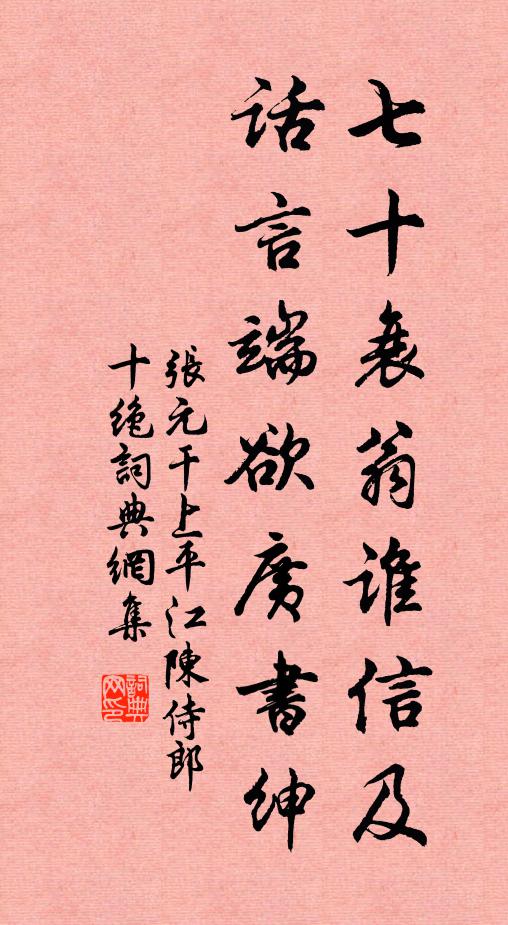 七十衰翁谁信及
话言端欲廣書紳
張元干上平江陳侍郎
十绝詞典網集
詞典网印